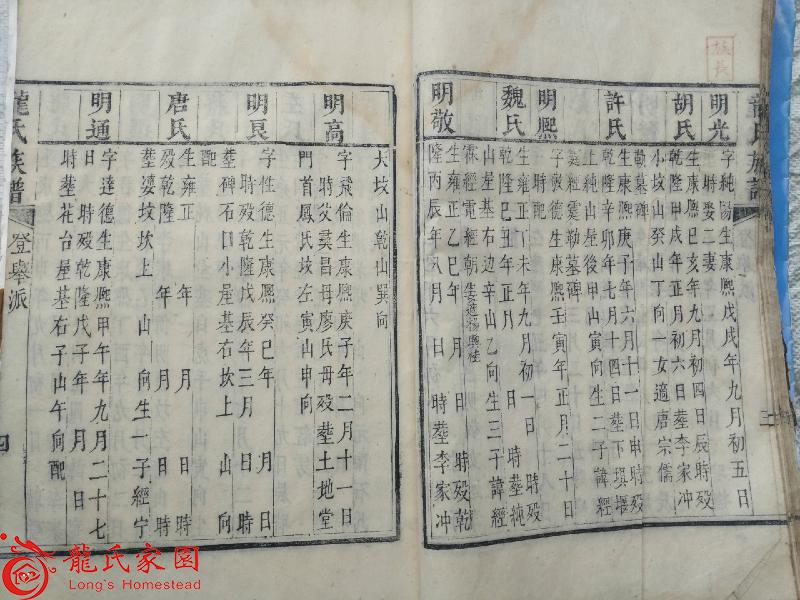 族長
龍氏族譜
明光 字純陽生康熙戊戌年九月初五日
時娶二妻
胡氏 生康熙己亥年九月初四日辰時殁
乾隆甲戌年正月初六日葬李家冲
小坟山癸山丁向一女適唐宗儒
勒墓碑
許氏 生康熙庚子年六月十一日申時殁
乾隆辛卯年七月十四日葬下塤堰
上純山屋後甲山寅向生二子諱經
奠經霙勒墓碑
明熈 字敦德生康熙壬寅年正月二十日
時配
魏氏 生雍正丁未年九月初一日 時殁
乾隆己丑年正月 日 時葬純
山屋基右边辛山乙向生三子諱經
霖經電經朝
明敬 生雍正乙巳年 月 日 時殁乾
隆丙辰年八月 日 時葬李家冲
大坟山乾山巽向
明高 字飛倫生康熙庚子年二月十一日
時父奠昌母廖氏毋殁葬土地堂
門首鳳氏坟左寅山申向
明良 字性德生康熙癸巳年 月 日
時殁乾隆戊辰年三月 日 時
葬碑石口小屋基右坎上 山 向
配
唐氏 生雍正 年 月 日 時
殁乾隆 年 月 日 時
葬婆坟坎上 山 向生一子經宁
明通 字達德生康熙甲午年九月二十七
日 時殁乾隆戊子年 月 日
時葬花台屋基右子山午向配
龍氏族譜
登舉派
四
龍氏家園
Long's Homestead